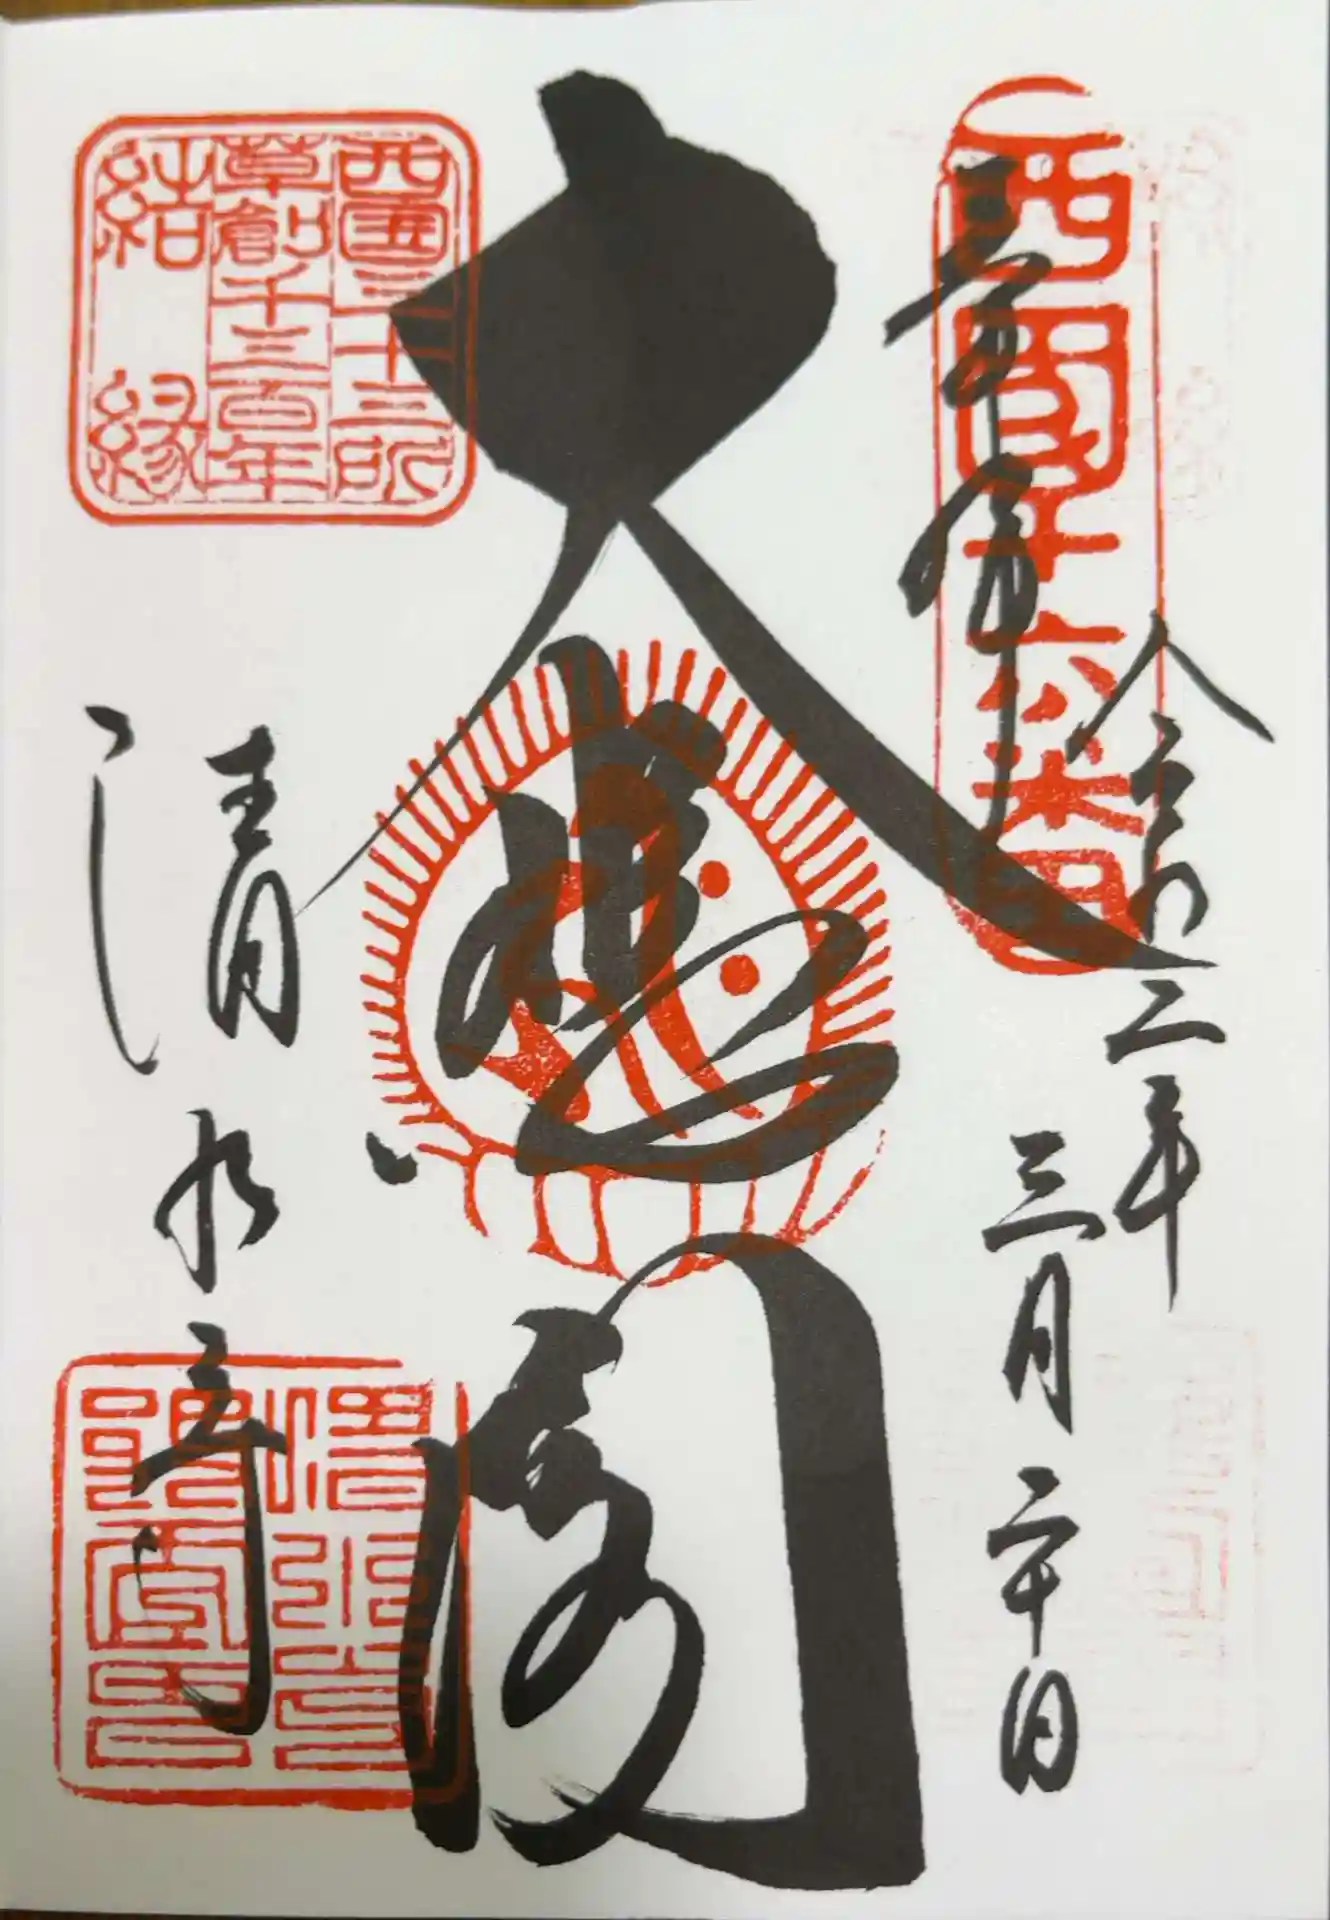 奉拝
西国十六番
令和二年
三月二十日
大悲閣
清水寺
西国三十三所
草創千三百年
結縁